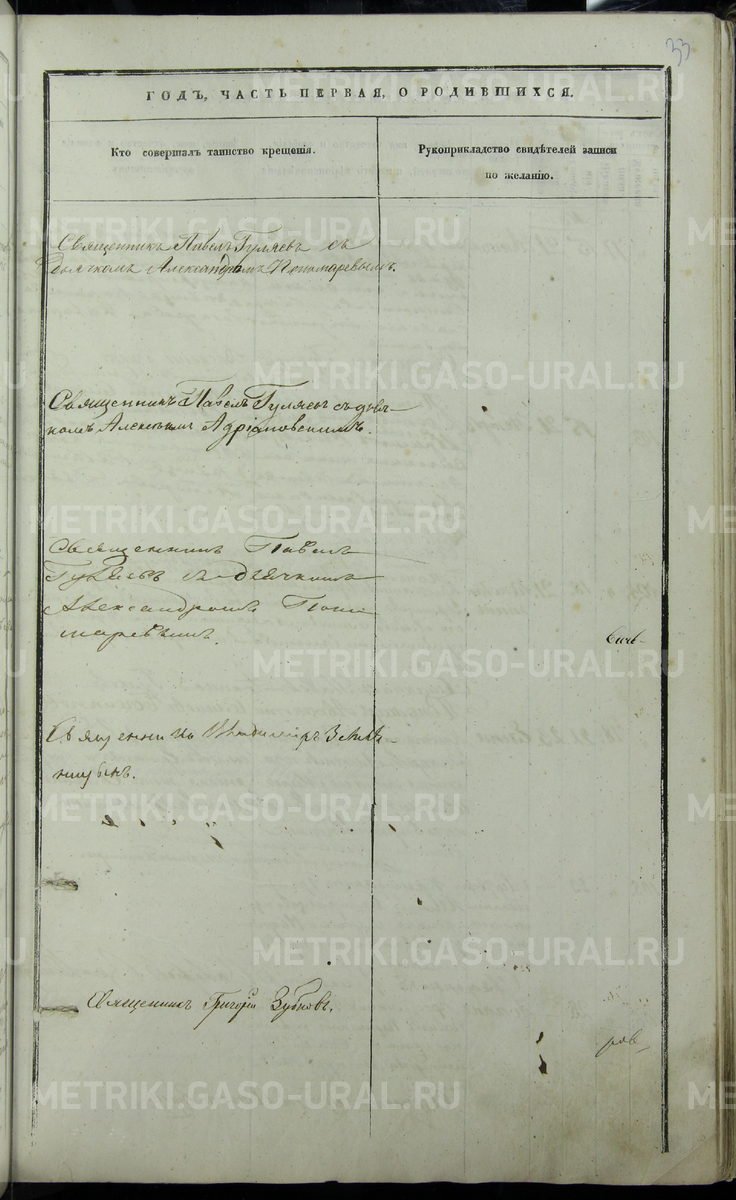 33
ГОДЪ, ЧАСТЬ ПЕРВАЯ, О РОДИВШИХСЯ.
Кто совершалъ таинство крещенія.
Рукоприкладство свидѣтелей записи
по желанію.
Священникъ Павелъ Гуляевъ съ
дьячкомъ Александромъ Пономаревымъ.
Священникъ Павелъ Гуляевъ съ дьяч-
комъ Алексѣемъ Адріановскимъ.
Священникъ Павелъ
Гуляевъ съ дьячкомъ
Александромъ Поно
маревымъ.
Священникъ
Священникъ Григорій Зубковъ.
METRIKI.GASO-URAL.RU